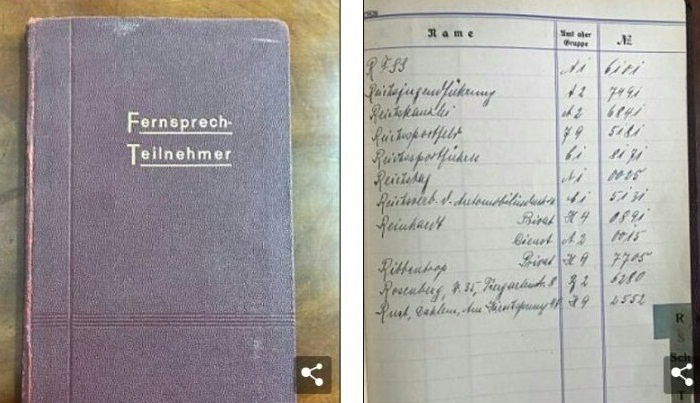 Fernsprech-
Teilnehmer
Name Amt oder Gruppe №
R F SS A 1 6101
Reichsjugendführung A 2 7491
Reichskanzlei A 2 6841
Reichssportfeld J 9 5181
Reichssportführer C 1 8171
Reichstag A 1 0025
Reichsverb. d. Automobilindustrie C 1 5131
Reinhardt Privat H 4 0891
Dienst A 2 0015
Ribbentrop Privat H 9 7705
Rosenberg, W. 35, Tiergartenstr. 8 B 2 5280
Rust, Dahlem, Am Hirschsprung H 9 2552
R
S
Sch
T